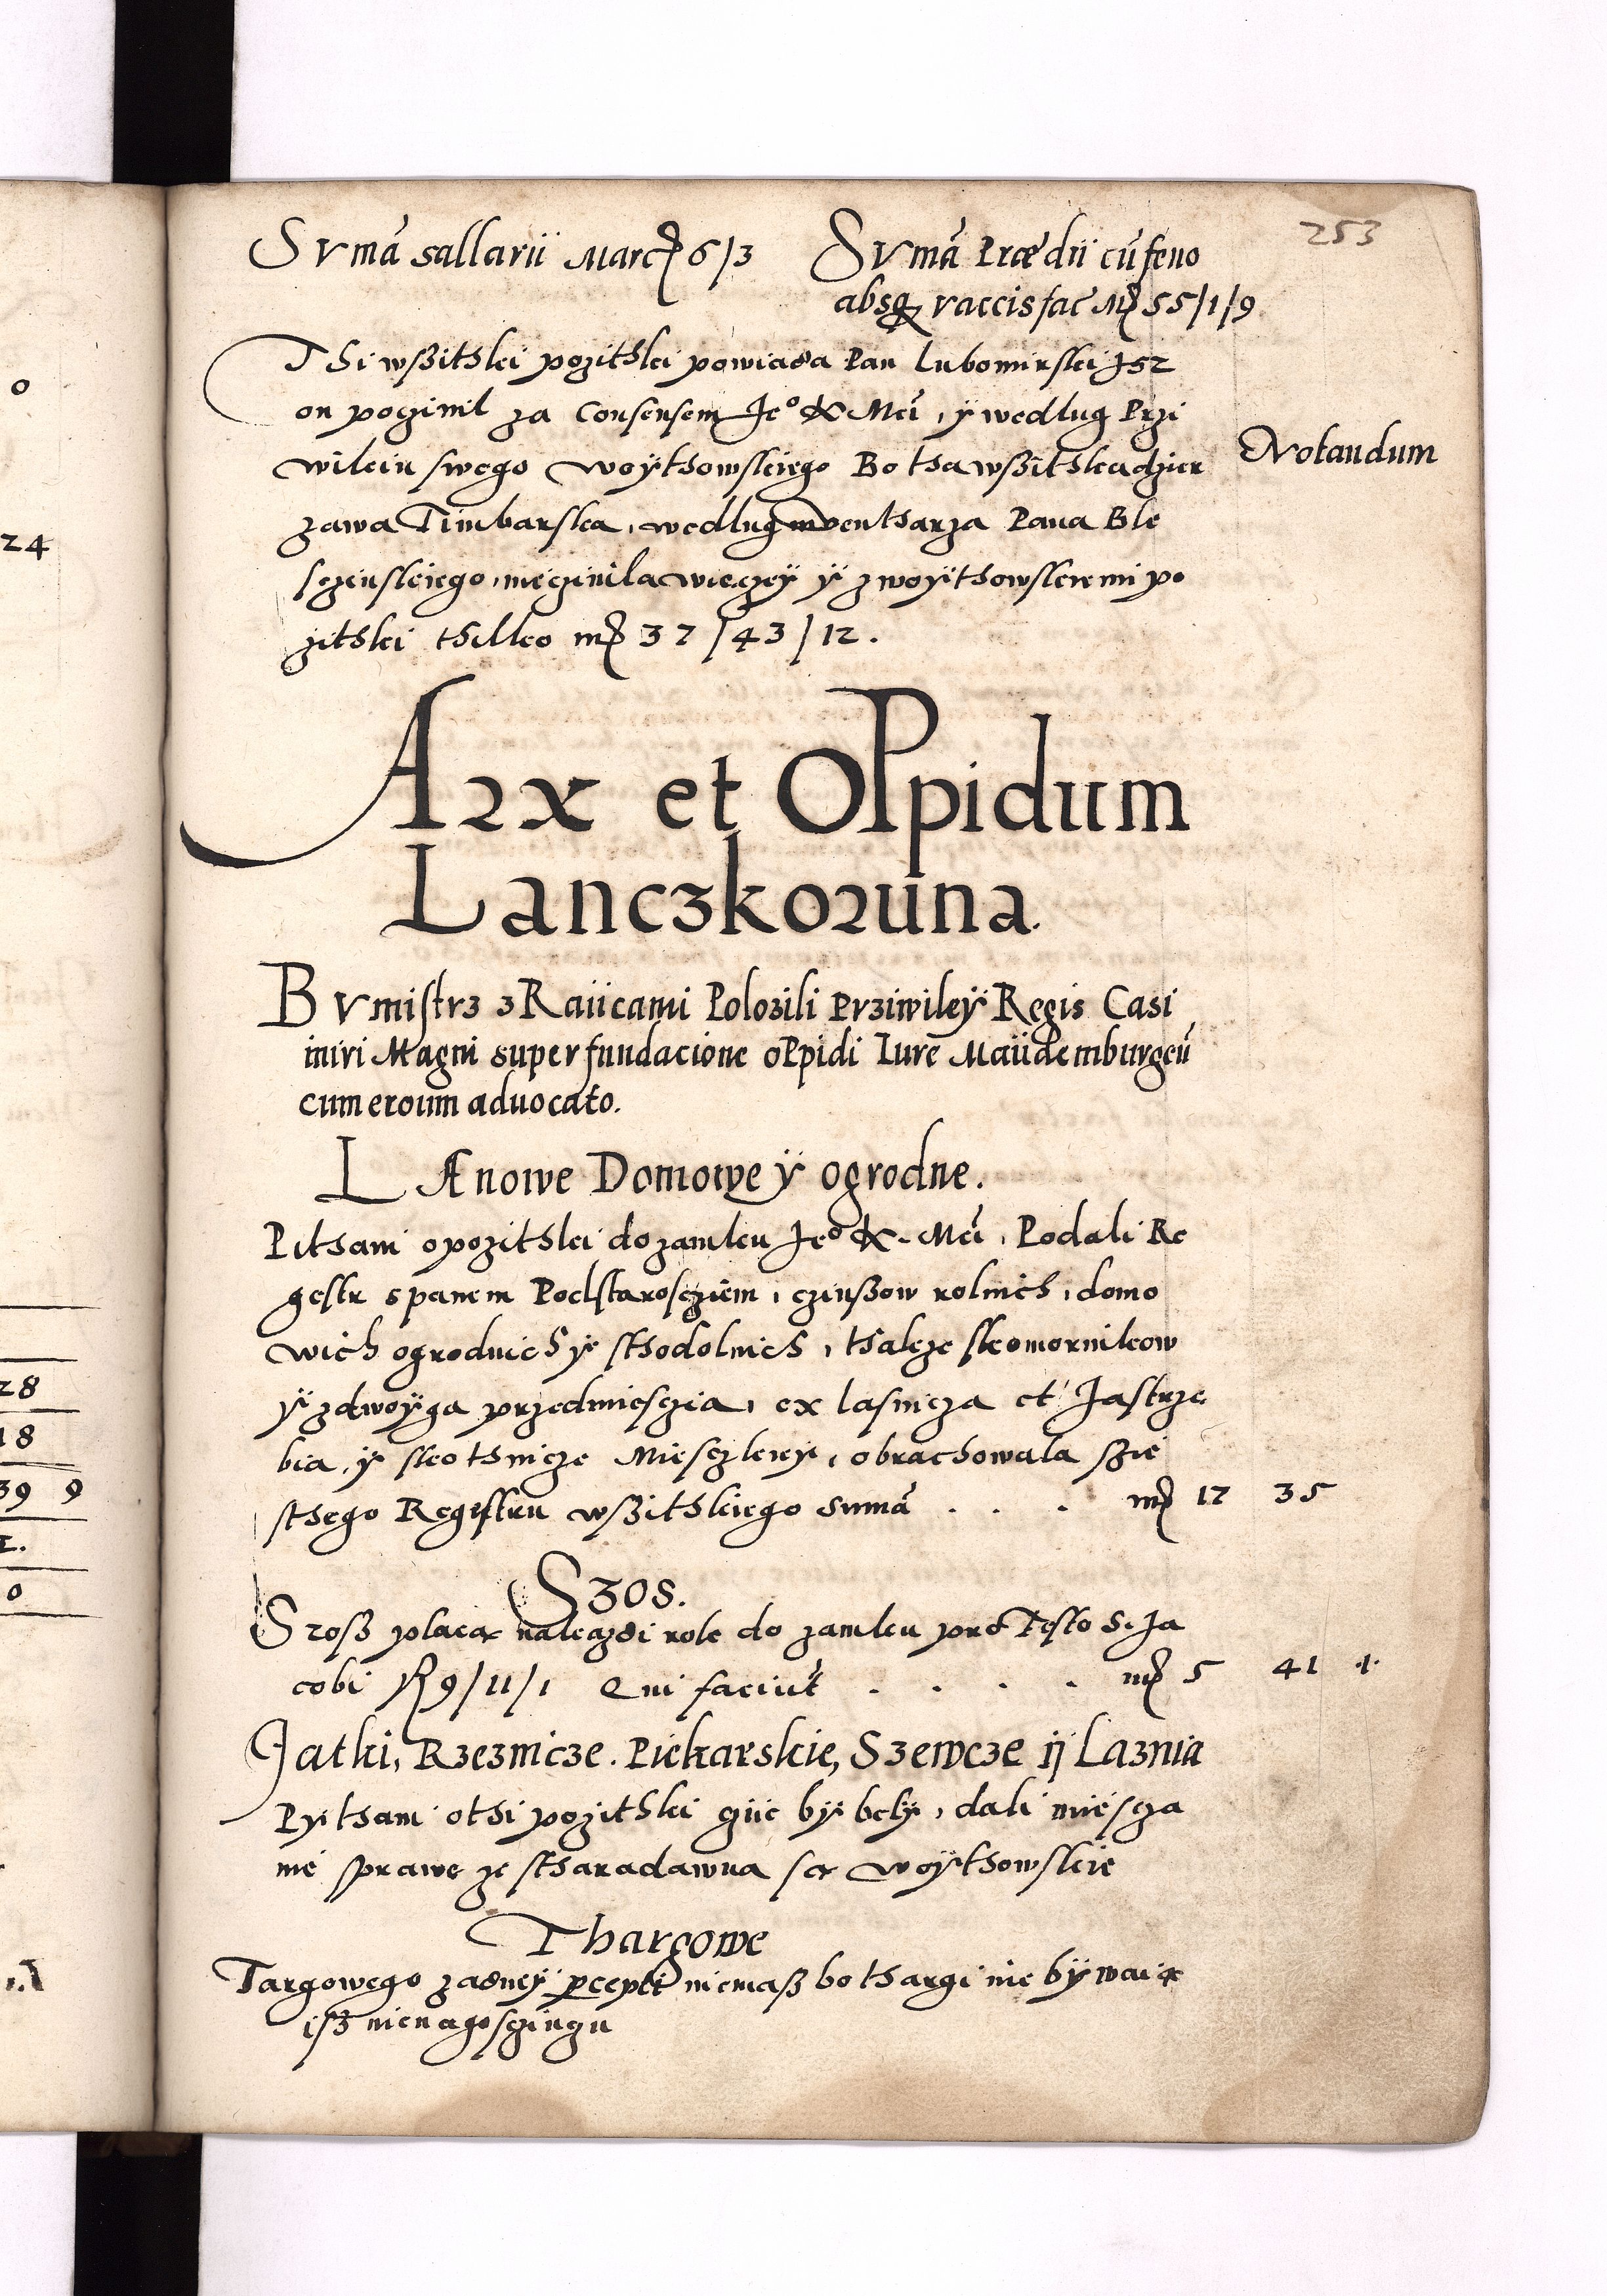 253
Svmā sallarii Marcȩ 6/3
Svmā Prædii cū feno
absqȝ vaccis fac Mȩ 55/1/9
Thi wßithki pozithki powiada Pan Lubomirski Jsz
on poczinil za Consensem Jeº K Mci, ÿ wedlug Przi
Notandum
wileiu swego woÿthowskiego Bo tha wßithka dzier
zawa Timbarska, wedlug inventharza Pana Ble
sczinskiego, nie czinila wieczeÿ ÿ z woÿthowskiemi po
zithki thilko mȩ 37/43/12.
Arx et Oppidum
Lanczkoruna.
Bvmistrz z Raiicami Polozili Prziwileÿ Regis Casi
miri Magni super fundacione oppidi Iure Maiidemburgeū
cum eorum aduocato.
Lanowe Domowe ÿ ogrodne.
Pithani o pozithki do zamku Jeº K. Mci, Podali Re
gestr s panem Podstarosczim, czinßow rolnich, domo
wich ogrodnich ÿ sthodolnich, thakze s komornikow
ÿ z dwoÿga przedmiesczia, ex lasnicza et Jastrze
bia, ÿ s kothnicze Miesczkieÿ, obrachowala szie
sthego Registru wßithkiego sumā . . . mȩ 12 35
Szos.
Szoß placą na kazdi rok do zamku pro Festo S. Ja
cobi ȩ 9/11/1 Qui faciūt . . . . mȩ 5 41 ·1·
Jatki, Rzeznicze. Piekarskie, Szewcze ij Laznia
Pÿthani o thi pozithki giie bÿ belÿ, dali miescza
nie sprawe ze stharadawna są woÿthowskie
Thargowe
Targowego zadneÿ pcepti niemaß bo thargi nie bÿwaią
isz nienagosczingu